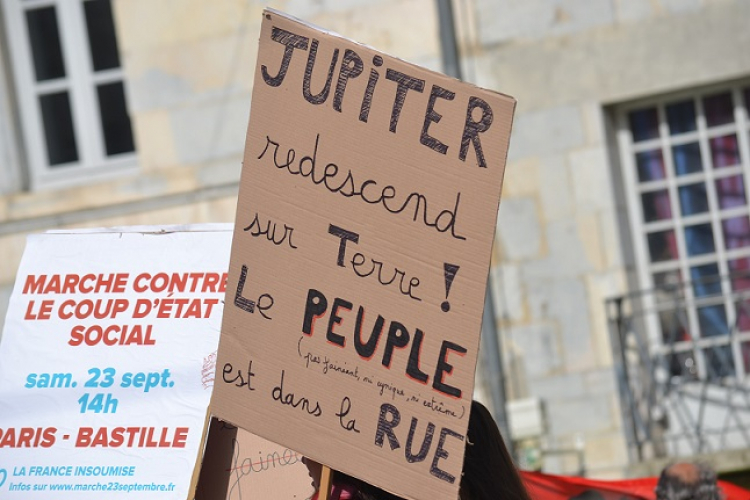 JUPiTER
redescend
sur Terre !
Le PEUPLE
(pas fainéant, ni cynique, ni extrême)
est dans la
RUE
MARCHE CONTRE
LE COUP D'ÉTAT
SOCIAL
sam. 23 sept.
14h
PARIS - BASTILLE
LA FRANCE INSOUMISE
Infos sur www.marche23septembre.fr